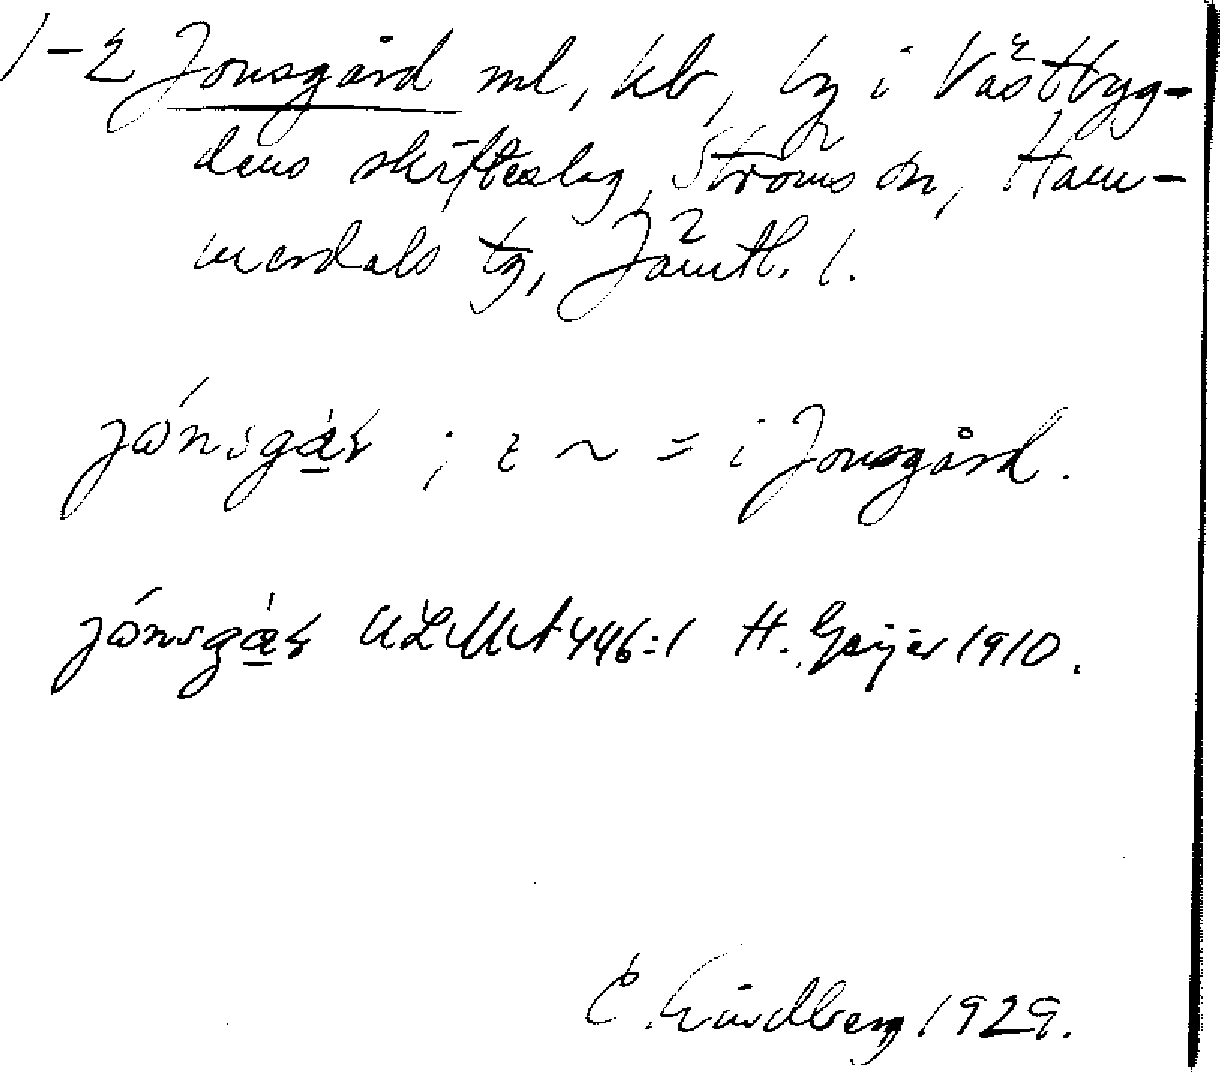 1-2 Jonsgård ml, kb, by i Västbyg-
dens skifteslag, Ströms sn, Ham-
merdals tg, Jämtl. l.
; ~ = i Jonsgård.
ULMA 446:1 H. Geijer 1910.
E. Lindberg 1929.